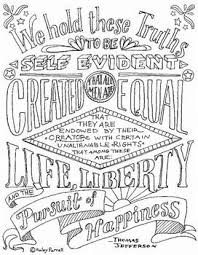 We hold these Truths
TO BE
SELF EVIDENT
THAT ALL
MEN ARE
CREATED EQUAL
THAT
THEY ARE
ENDOWED BY THEIR
CREATOR WITH CERTAIN
UNALIENABLE RIGHTS
THAT AMONG THESE
ARE
LIFE, LIBERTY
AND THE
Pursuit of
Happiness
THOMAS
JEFFERSON